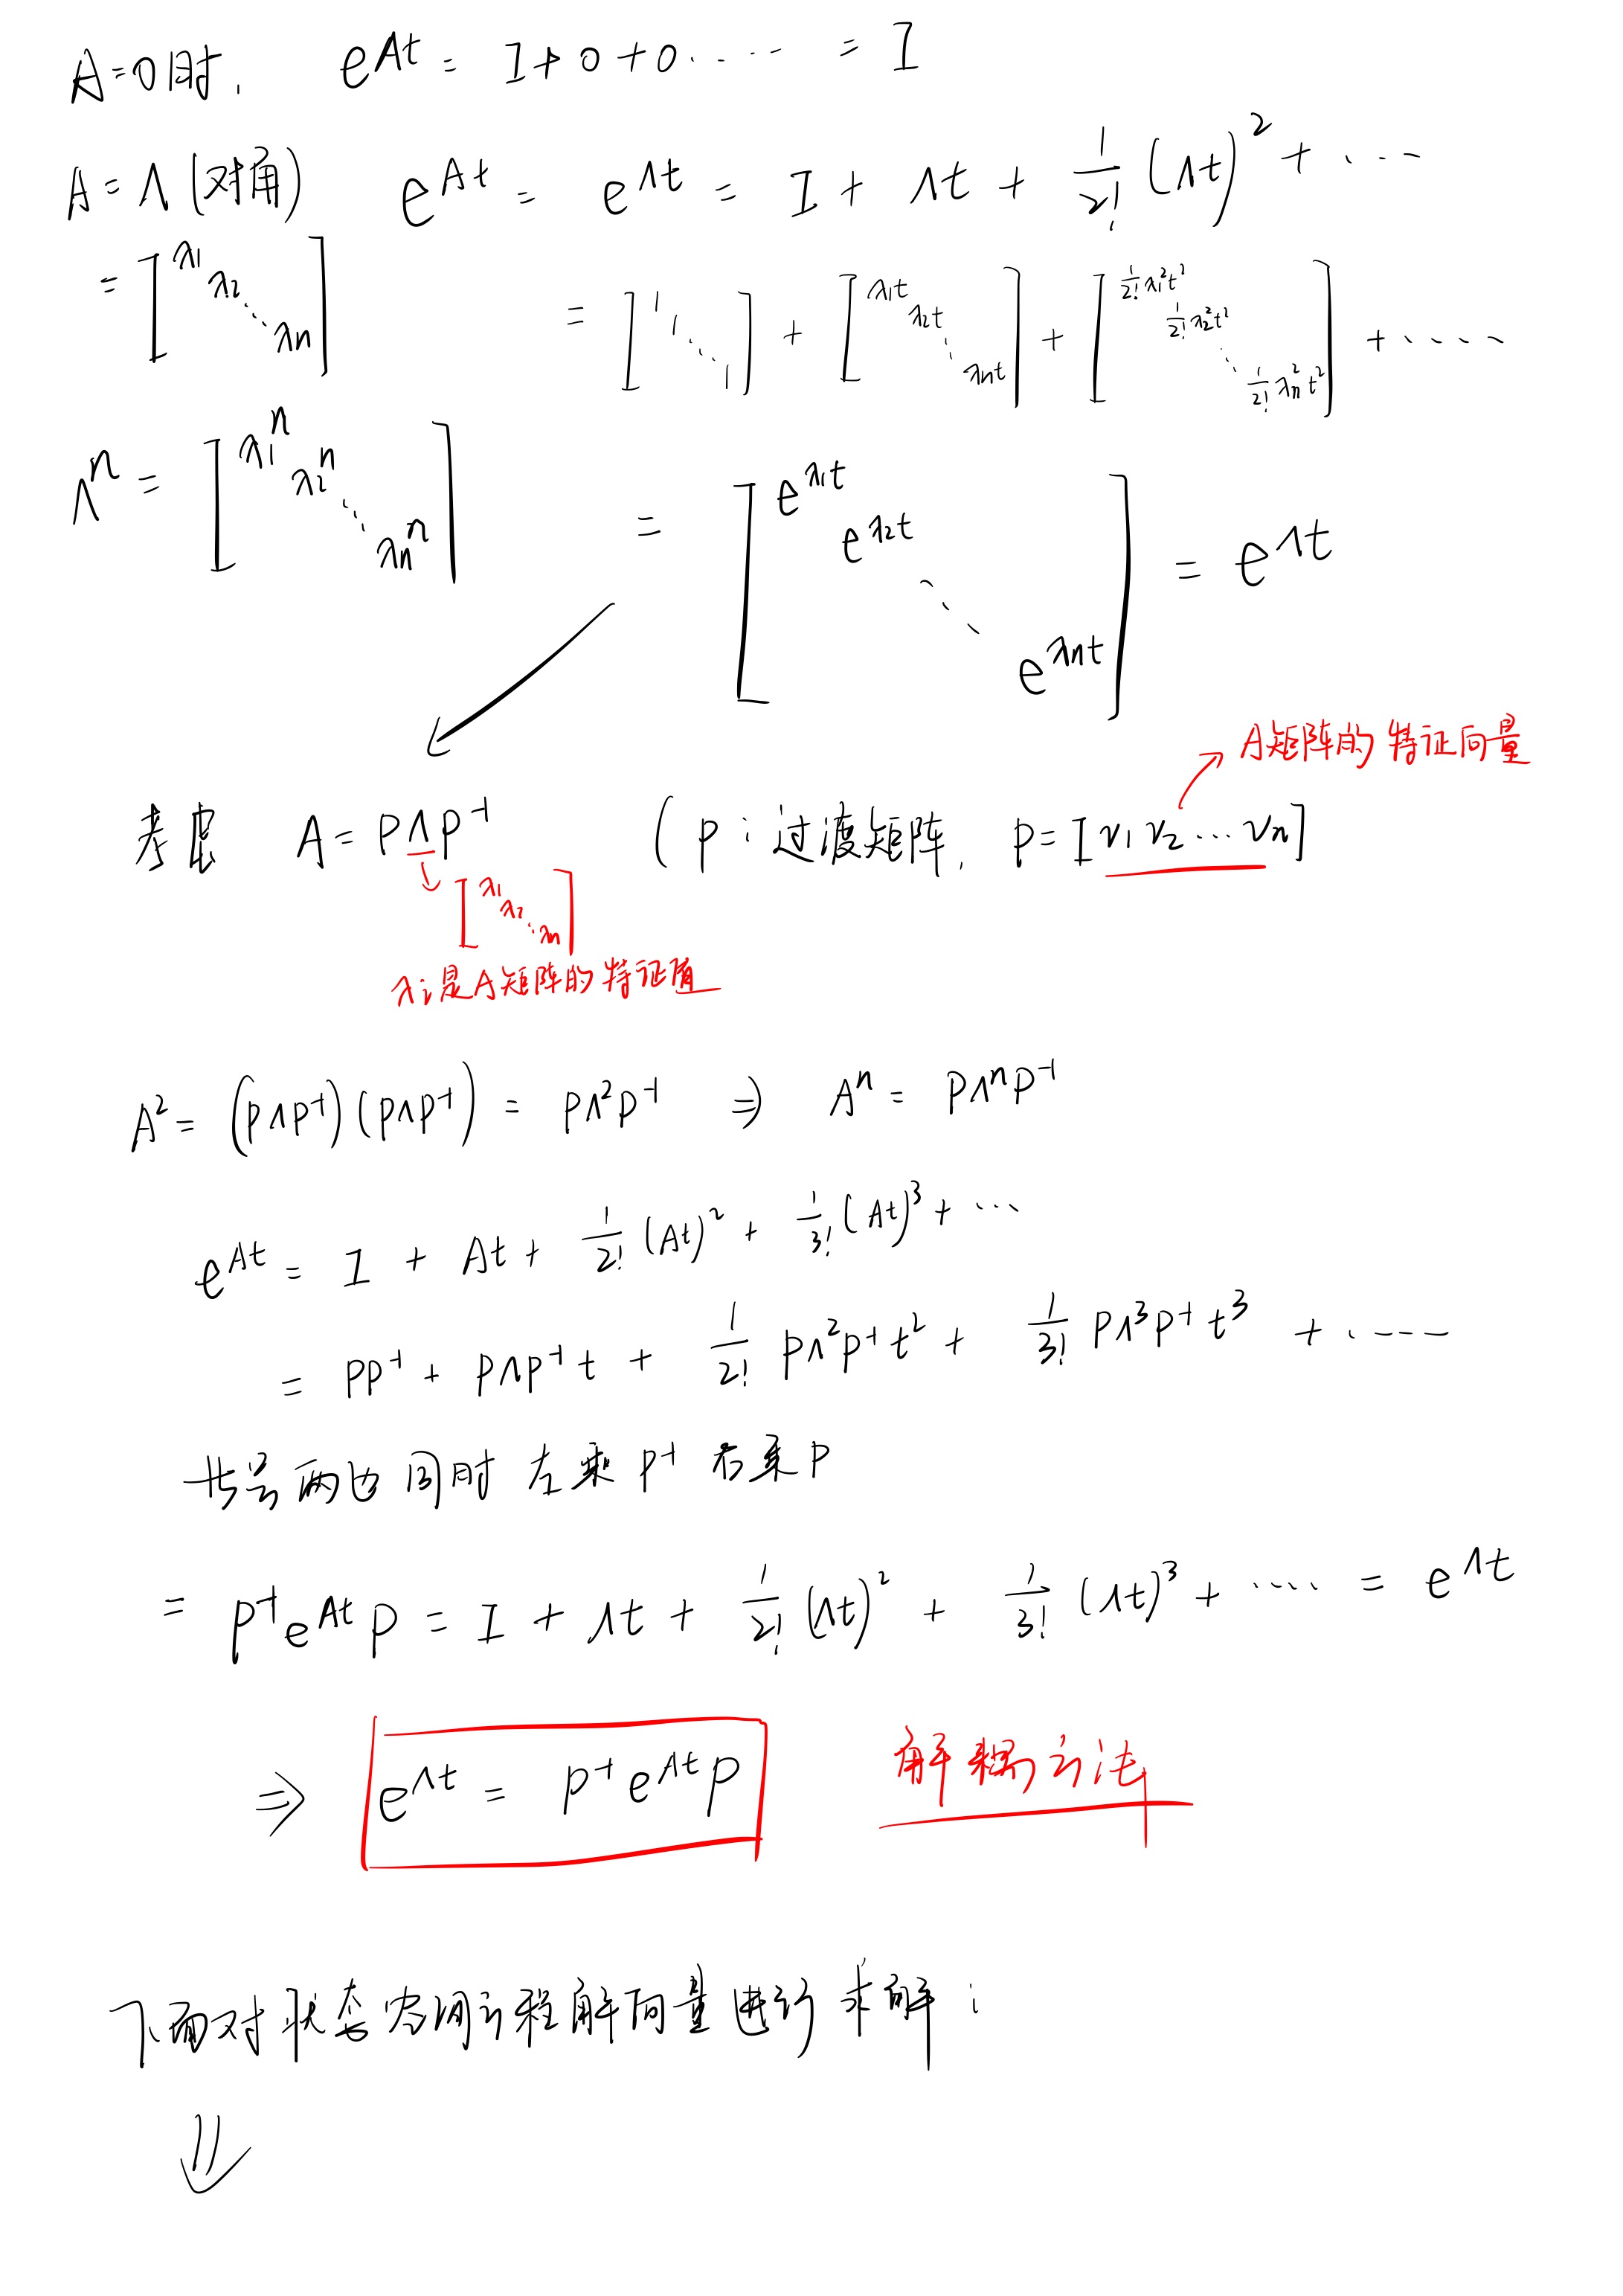 A=0时, e^{At} = I+0+0..... = I
A=Λ(对角) e^{At} = e^{Λt} = I + Λt + \frac{1}{2!}(Λt)^2 + ....
= [λ1 λ2 ... λn] = [1 1 ... 1] + [λ1t λ2t ... λnt] + [\frac{1}{2!}λ1^2t^2 \frac{1}{2!}λ2^2t^2 ... \frac{1}{2!}λn^2t^2] + .....
Λ^n = [λ1^n λ2^n ... λn^n] = [e^{λ1t} e^{λ2t} ... e^{λnt}] = e^{Λt}
A矩阵的特征向量
考虑 A = PΛP^{-1} (P:过渡矩阵, P=[v1 v2 ... vn]
[λ1 λ2 ... λn]
λi是A矩阵的特征值
A^2 = (PΛP^{-1})(PΛP^{-1}) = PΛ^2P^{-1} ⇒ A^n = PΛ^nP^{-1}
e^{At} = I + At + \frac{1}{2!}(At)^2 + \frac{1}{3!}(At)^3 + ...
= PP^{-1} + PΛP^{-1}t + \frac{1}{2!}PΛ^2P^{-1}t^2 + \frac{1}{3!}PΛ^3P^{-1}t^3 + .....
等号两边同时左乘P^{-1} 右乘P
= P^{-1}e^{At}P = I + Λt + \frac{1}{2!}(Λt)^2 + \frac{1}{3!}(Λt)^3 + ..... = e^{Λt}
⇒ e^{Λt} = P^{-1}e^{At}P 解耦方法
下面对状态空间方程解向量进行求解:
⇓